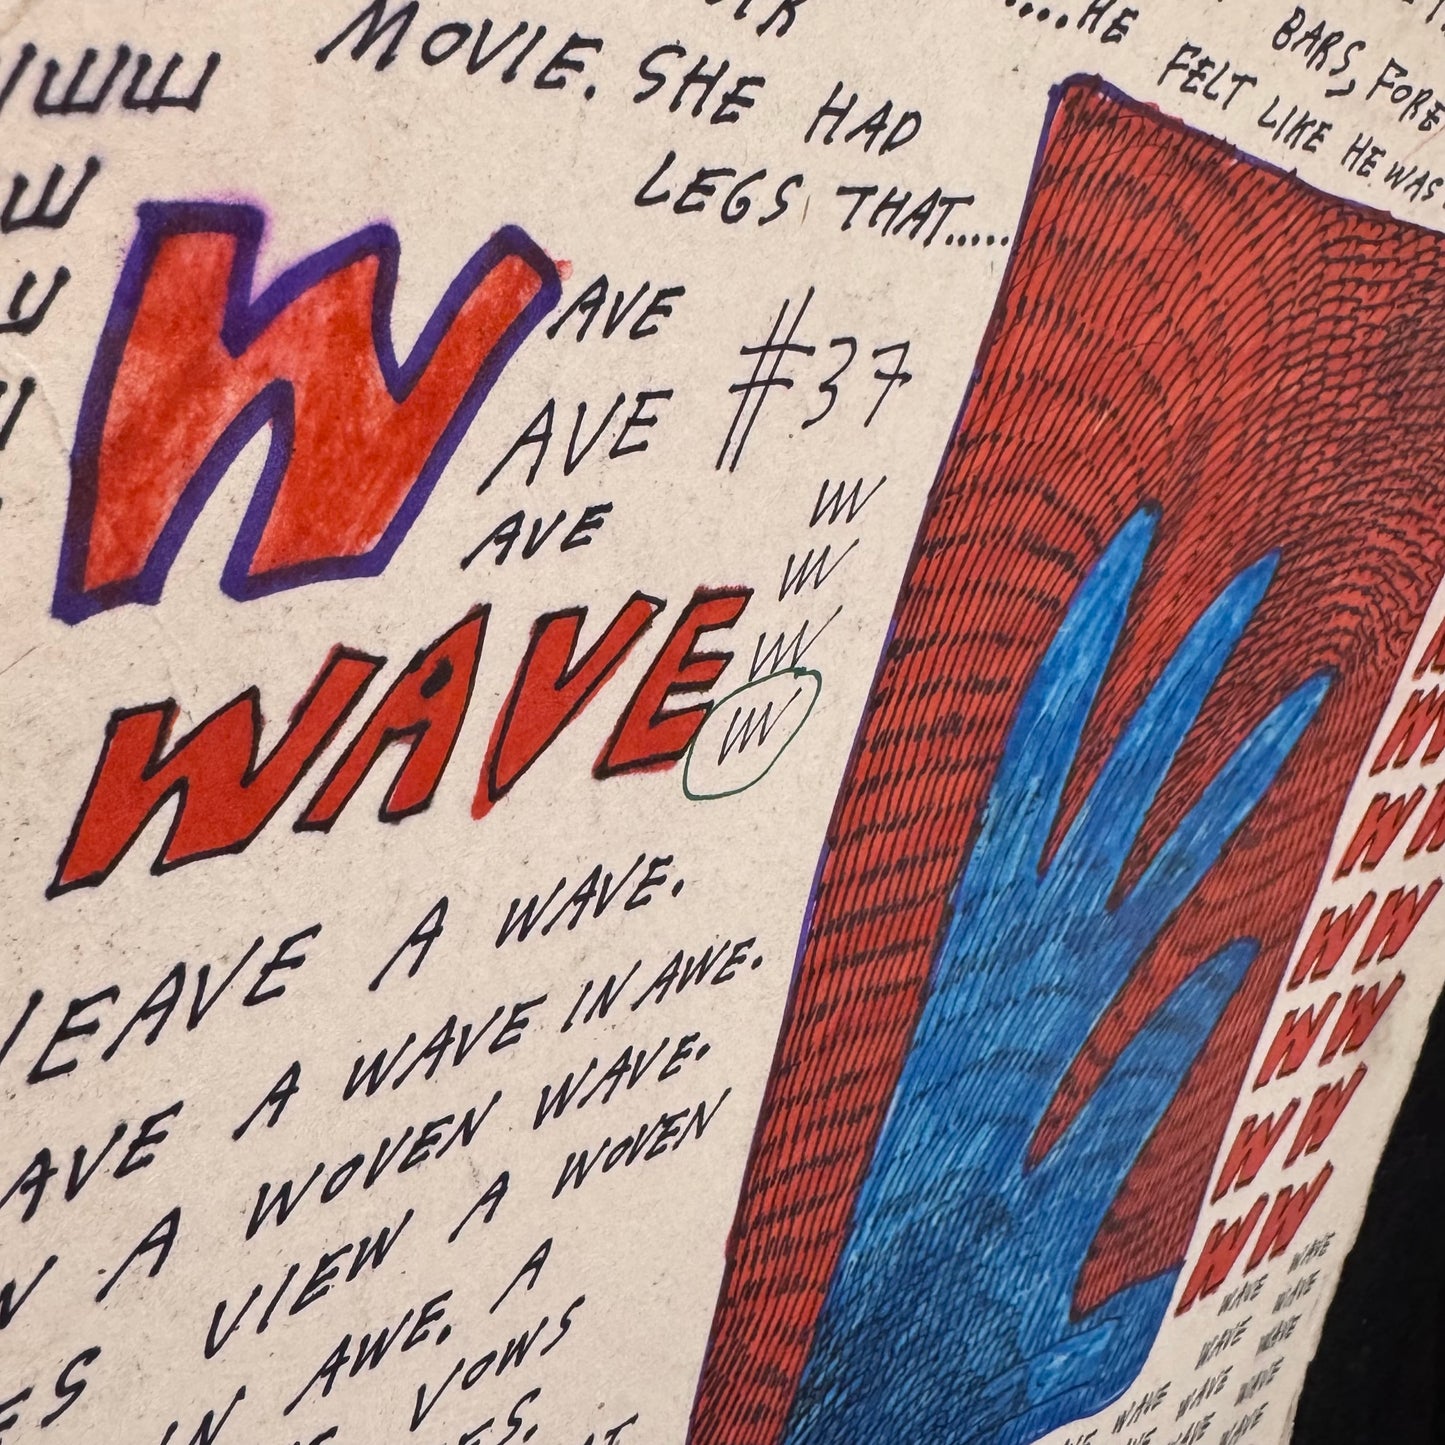 MOVIE. SHE HAD
LEGS THAT.....
....HE
BARS, FORE
FELT LIKE HE WAS
WAVE
AVE
AVE
#37
W
W
W
W
WAVE
WEAVE A WAVE.
AVE A WAVE IN AWE.
A WOVEN WAVE.
VIEW A WOVEN
IN AWE. A
VOWS
W W
W W
W W
W W
W W
W W
W W
WAVE WAVE
WAVE WAVE
WAVE WAVE
WAVE WAVE WAVE
WAVE WAVE